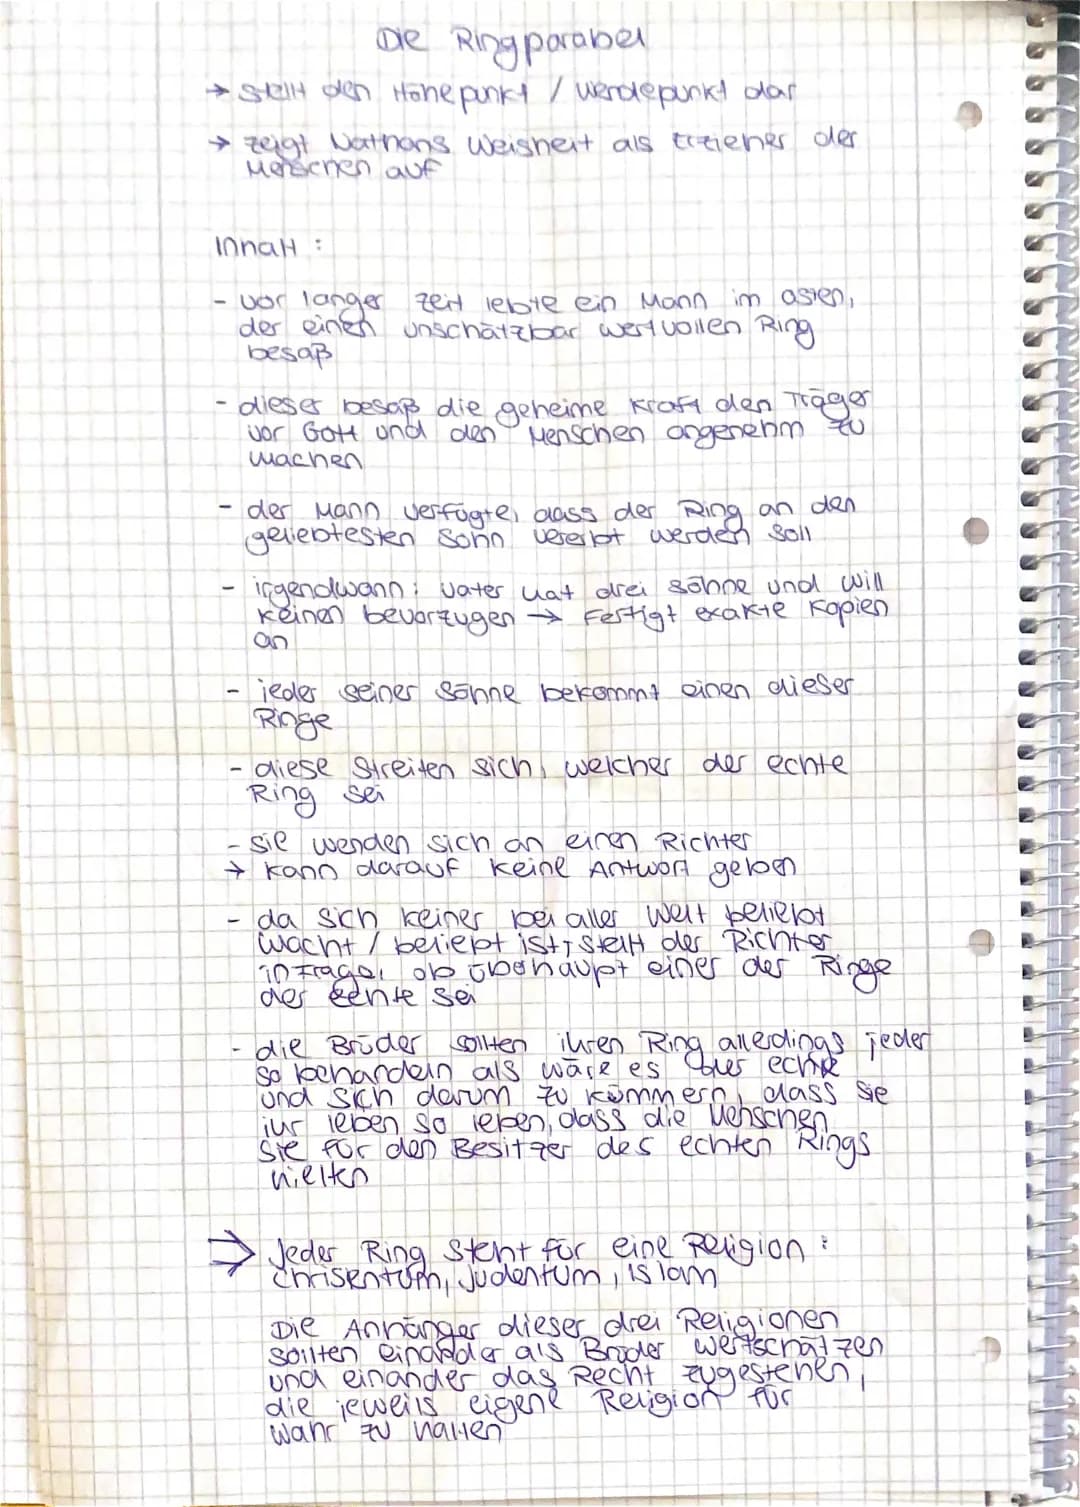 Die Ringparabel
→ stellt den Höhepunkt / Wendepunkt dar
→ zeigt Nathans Weisheit als Erzieher der
Menschen auf
Inhalt :
- vor langer Zeit lebte ein Mann im osten,
der einen unschätzbar wertvollen Ring
besaß
- dieser besaß die geheime Kraft den Träger
vor Gott und den Menschen angenehm zu
machen
- der Mann verfügte, dass der Ring an den
geliebtesten Sohn vererbt werden soll
- irgendwann : Vater hat drei Söhne und will
keinen bevorzugen → Fertigt exakte Kopien
an
- jeder seiner Söhne bekommt einen dieser
Ringe
- diese Streiten sich, welcher der echte
Ring sei
- sie wenden sich an einen Richter
→ kann darauf keine Antwort geben
- da sich keiner bei aller Welt beliebt
macht / beliebt ist, stellt der Richter
infrage, ob überhaupt einer der Ringe
der echte sei
- die Brüder sollten ihren Ring allerdings jeder
so behandeln als wäre es der echte
und sich darum zu kümmern, dass sie
ihr leben so leben, dass die Menschen
sie für den Besitzer des echten Rings
hielten
⇒ Jeder Ring steht für eine Religion :
Chrisentum, Judentum, Islam
Die Anhänger dieser drei Religionen
sollten einander als Brüder wertschätzen
und einander das Recht zugestehen,
die jeweils eigene Religion für
wahr zu halten